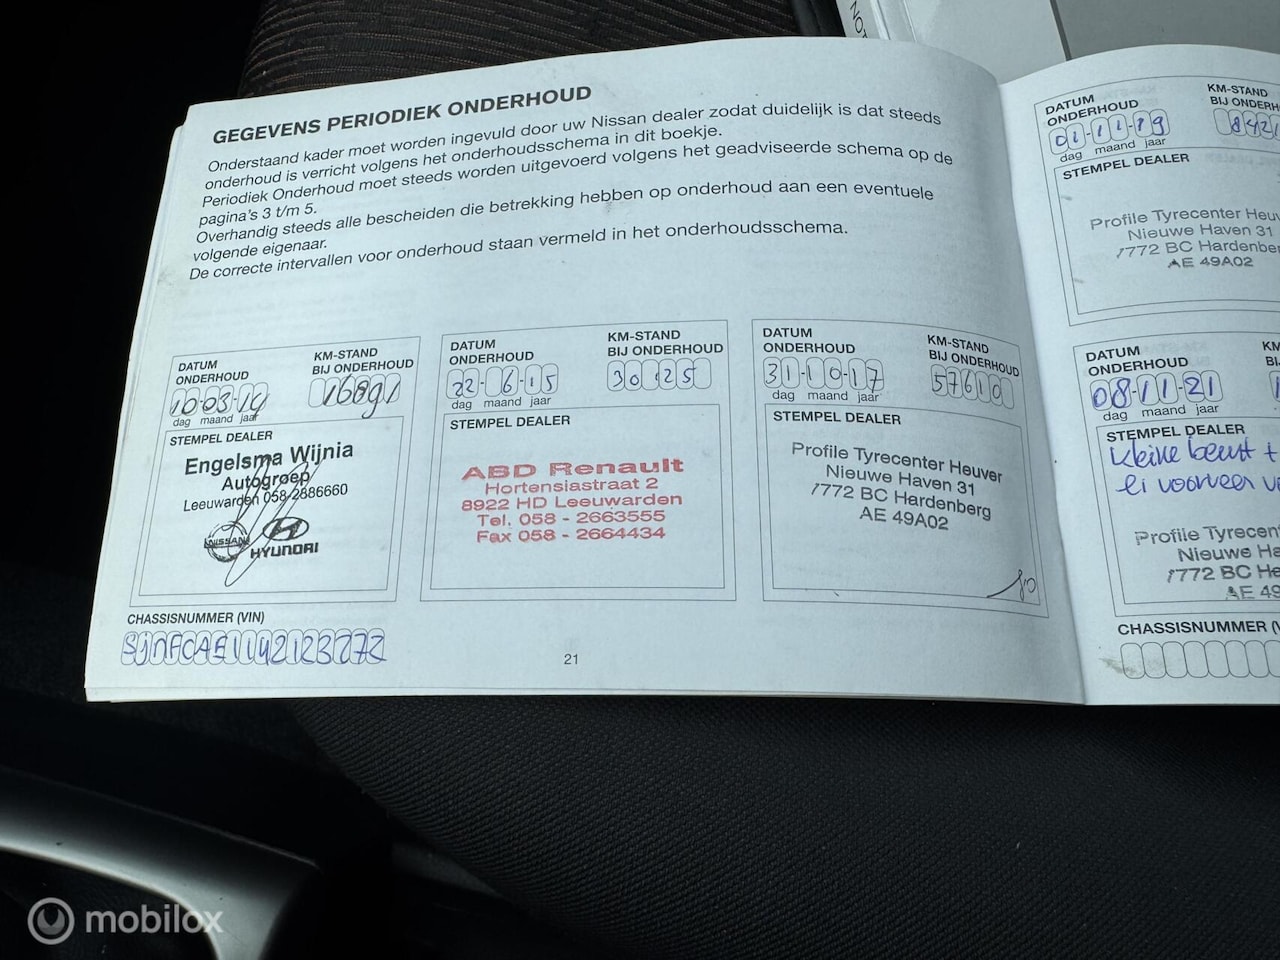 NOT
GEGEVENS PERIODIEK ONDERHOUD
Onderstaand kader moet worden ingevuld door uw Nissan dealer zodat duidelijk is dat steeds
onderhoud is verricht volgens het onderhoudsschema in dit boekje.
Periodiek Onderhoud moet steeds worden uitgevoerd volgens het geadviseerde schema op de
pagina's 3 t/m 5.
Overhandig steeds alle bescheiden die betrekking hebben op onderhoud aan een eventuele
volgende eigenaar.
De correcte intervallen voor onderhoud staan vermeld in het onderhoudsschema.
DATUM
ONDERHOUD
KM-STAND
BIJ ONDERHOUD
10-03-14
16891
dag maand jaar
STEMPEL DEALER
Engelsma Wijnia
Autogroep
Leeuwarden 058-2886660
NISSAN
HYUNDAI
CHASSISNUMMER (VIN)
DATUM
ONDERHOUD
KM-STAND
BIJ ONDERHOUD
22-6-15
30125
dag maand jaar
STEMPEL DEALER
ABD Renault
Hortensiastraat 2
8922 HD Leeuwarden
Tel. 058 - 2663555
Fax 058 - 2664434
DATUM
ONDERHOUD
KM-STAND
BIJ ONDERHOUD
31-10-17
57610
dag maand jaar
STEMPEL DEALER
Profile Tyrecenter Heuver
Nieuwe Haven 31
7772 BC Hardenberg
AE 49A02
21
DATUM
ONDERHOUD
KM-STAND
BIJ ONDERH
01-11-19
842
dag maand jaar
STEMPEL DEALER
Profile Tyrecenter Heuv
Nieuwe Haven 31
7772 BC Hardenber
AE 49A02
DATUM
ONDERHOUD
KM
BIJ
08-11-21
1
dag maand jaar
STEMPEL DEALER
kleine beurt +
Profile Tyrecen
Nieuwe Ha
7772 BC He
AE 49
CHASSISNUMMER (V
mobilox